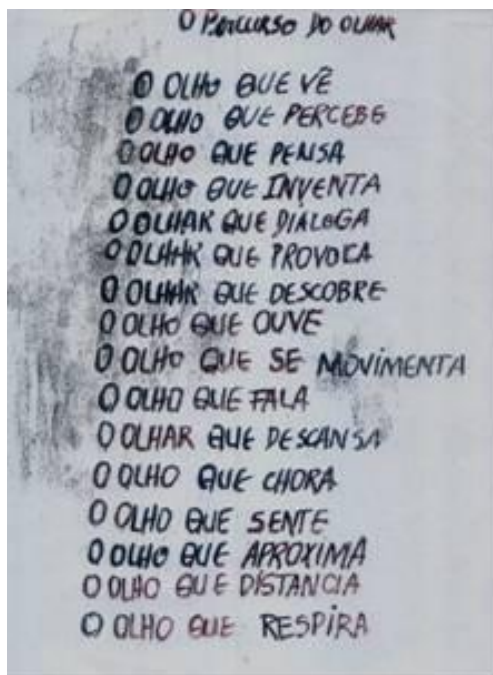 O PERCURSO DO OLHAR
O OLHO QUE VÊ
O OLHO QUE PERCEBE
O OLHO QUE PENSA
O OLHO QUE INVENTA
O OLHAR QUE DIALOGA
O OLHAR QUE PROVOCA
O OLHAR QUE DESCOBRE
O OLHO QUE OUVE
O OLHO QUE SE MOVIMENTA
O OLHO QUE FALA
O OLHAR QUE DESCANSA
O OLHO QUE CHORA
O OLHO QUE SENTE
O OLHO QUE APROXIMA
O OLHO QUE DISTANCIA
O OLHO QUE RESPIRA